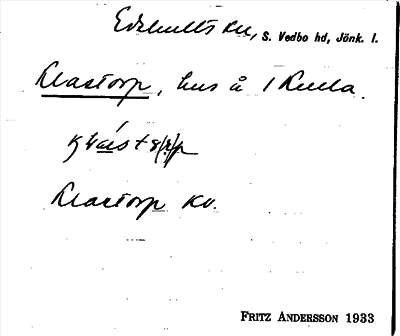 Edshults sn, S. Vedbo hd, Jönk. l.
Klastorp, hus å 1 Kulla.
Klastorp Kv.
FRITZ ANDERSSON 1933